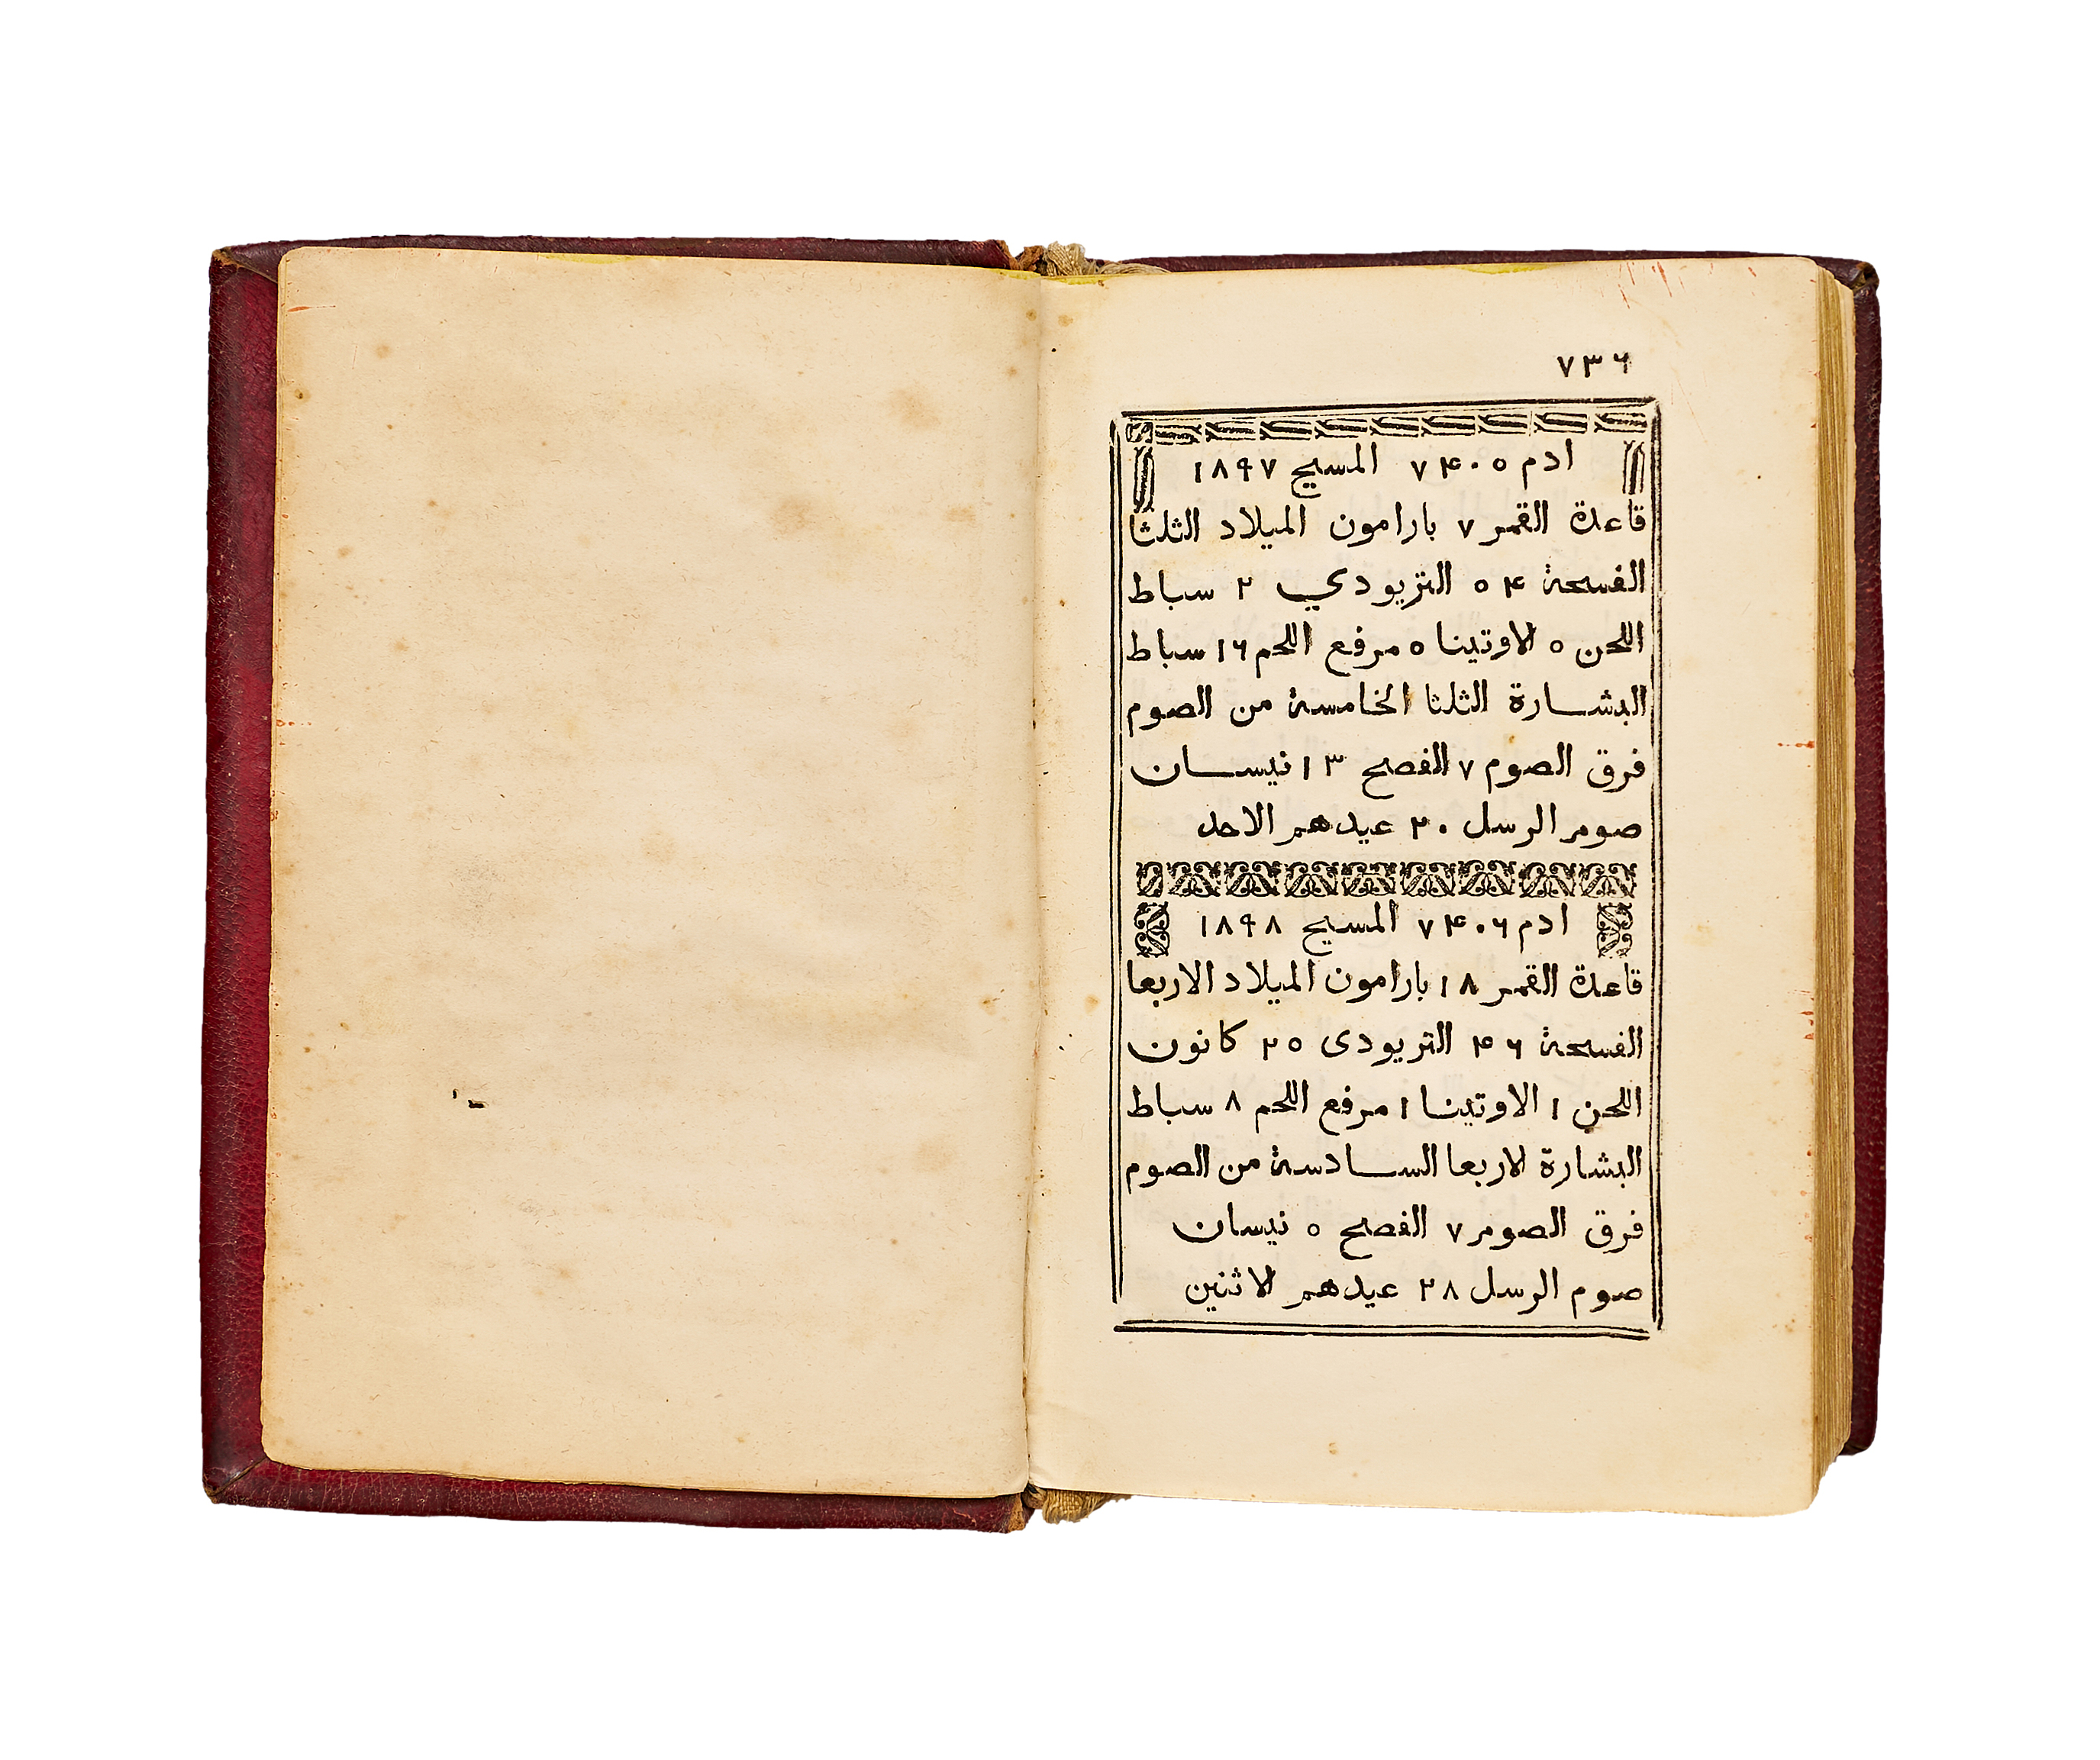 ٧٣٦
ادم ٧٤٠٥ المسيح ١٨٩٧
قاعدة القمر ٧ بارامون الميلاد الثلثا
الفسحة ٥٤ التريودي ٢ سباط
اللحن ٥ الاوتينا ٥ مرفع اللحم ١٦ سباط
البشارة الثلثا الخامسة من الصوم
فرق الصوم ٧ الفصح ١٣ نيسان
صوم الرسل ٢٠ عيدهم الاحد
ادم ٧٤٠٦ المسيح ١٨٩٨
قاعدة القمر ١٨ بارامون الميلاد الاربعا
الفسحة ٤٦ التريودى ٢٥ كانون
اللحن ١ الاوتينا ١ مرفع اللحم ٨ سباط
البشارة الاربعا السادسة من الصوم
فرق الصوم ٧ الفصح ٥ نيسان
صوم الرسل ٢٨ عيدهم الاثنين